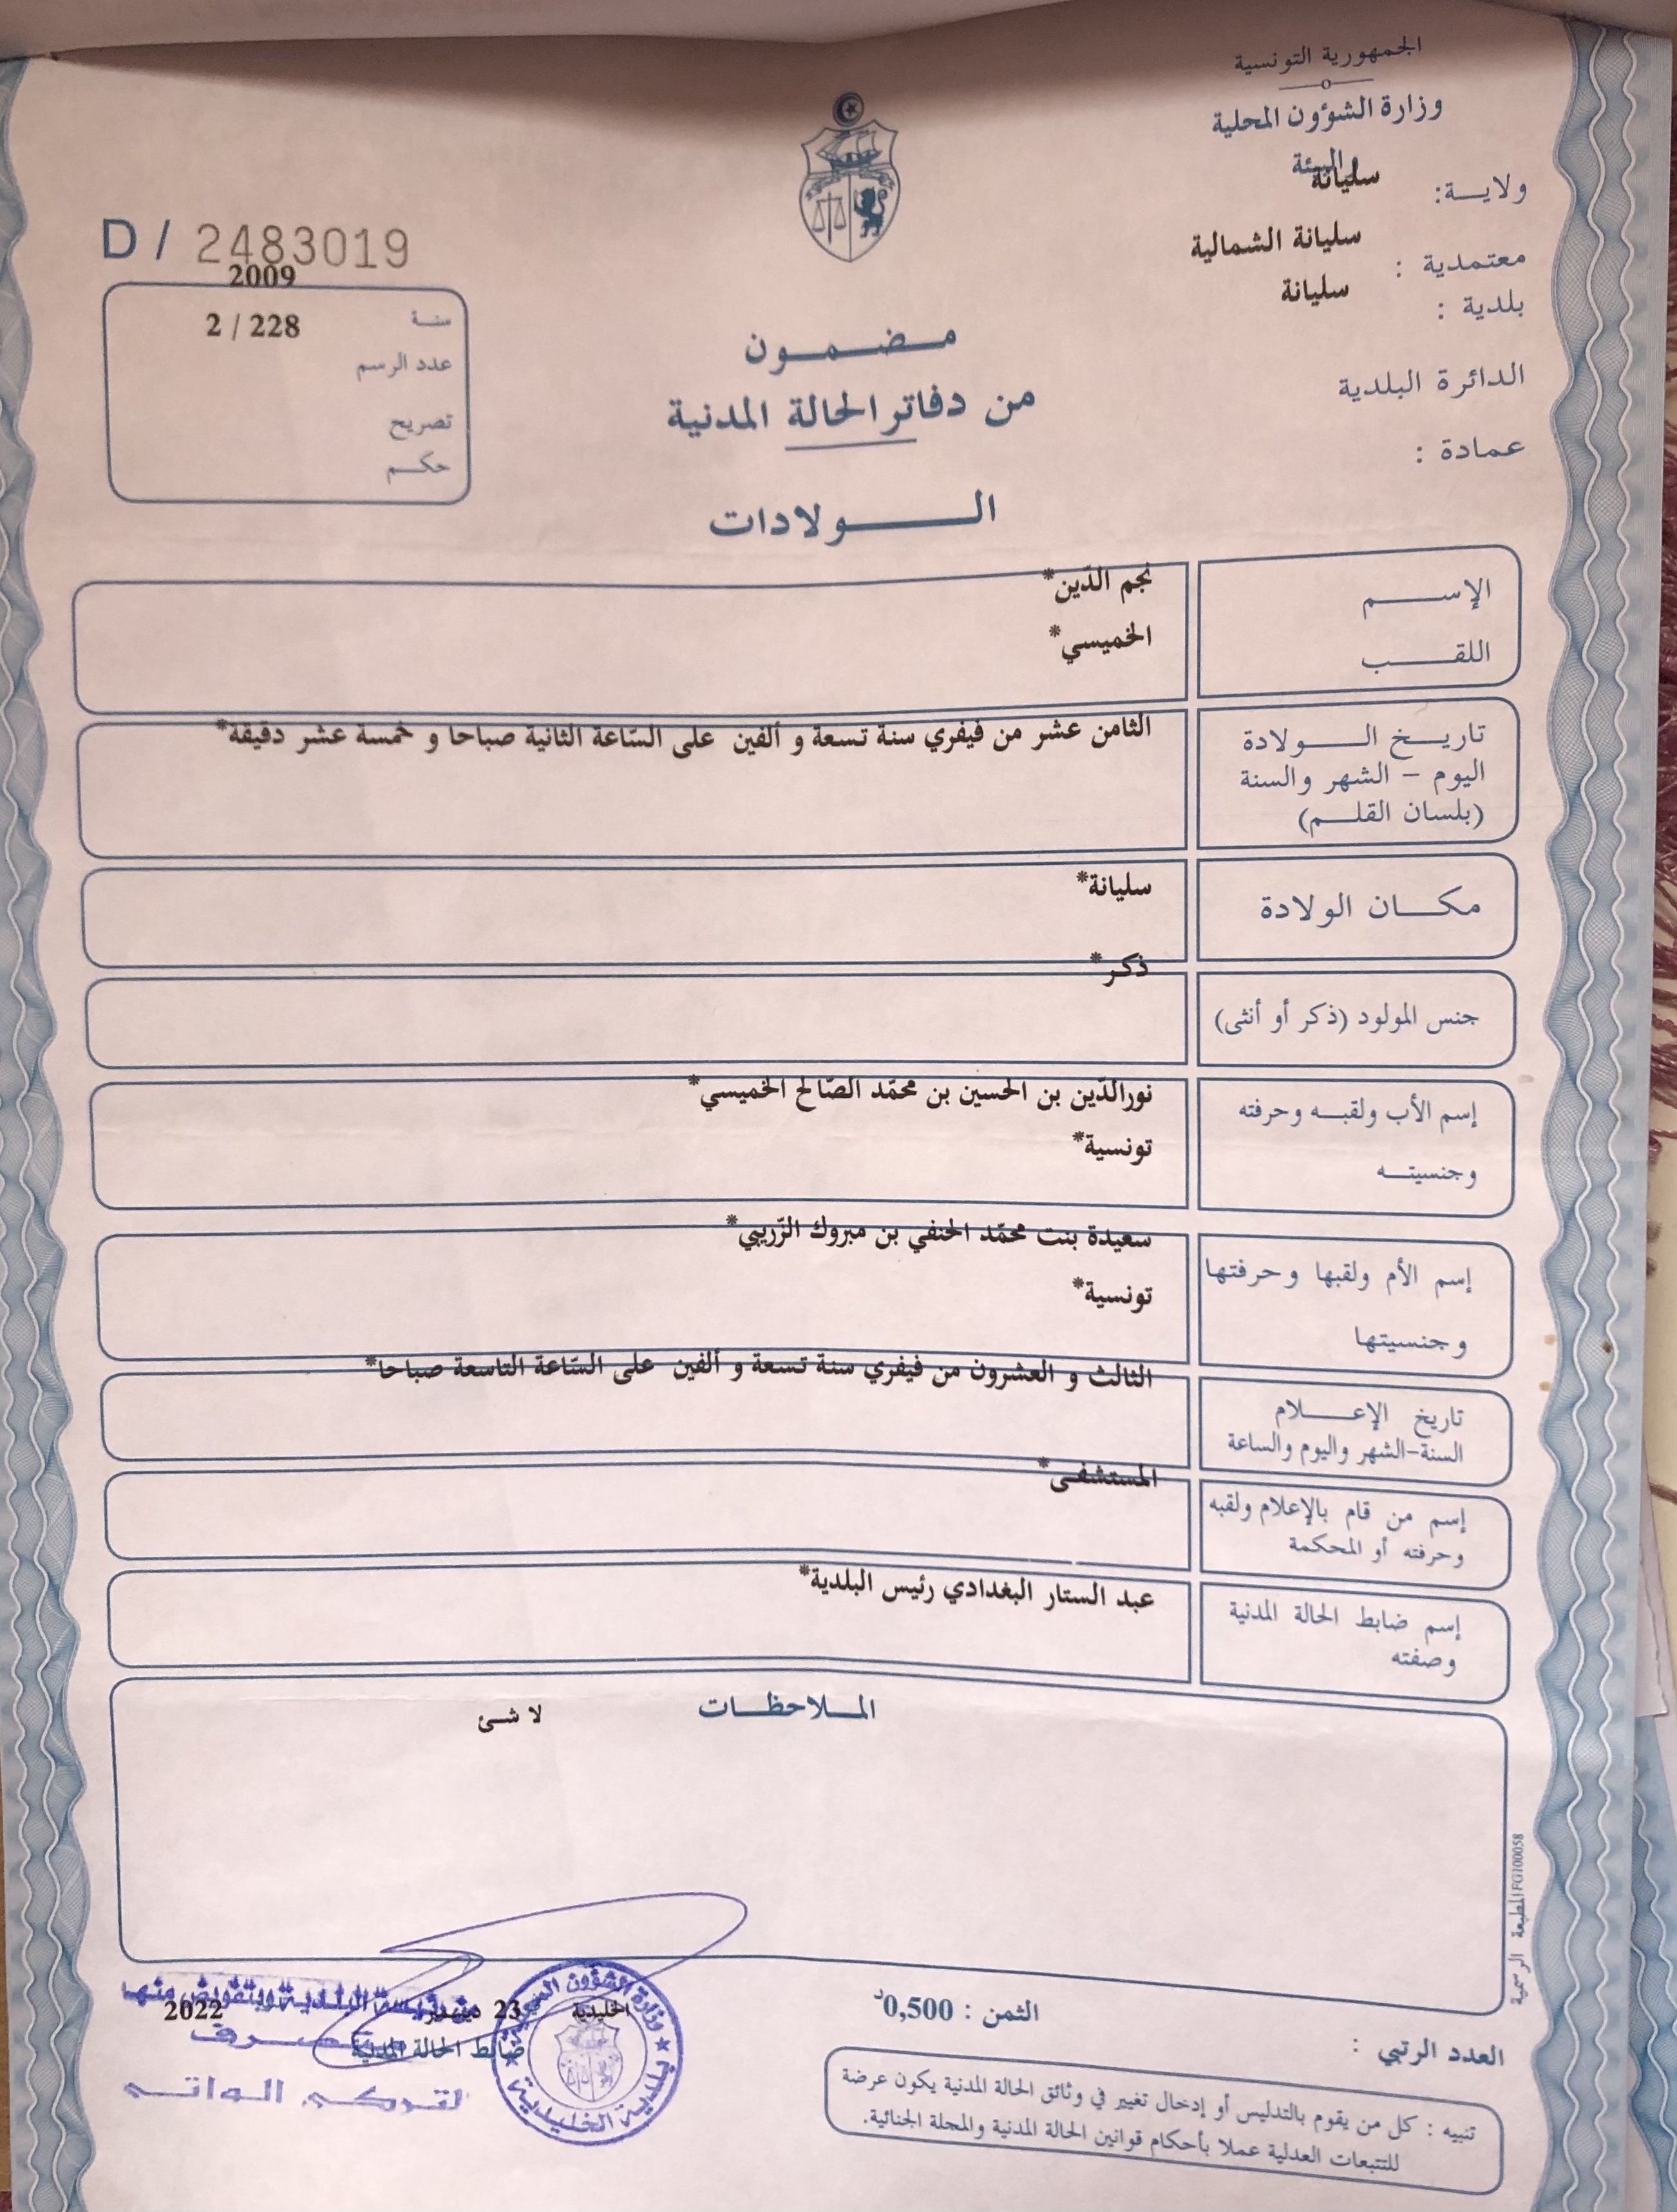 الجمهورية التونسية
وزارة الشؤون المحلية
والبيئة
ولايــة: سليانة
معتمدية : سليانة الشمالية
بلدية : سليانة
الدائرة البلدية
عمادة :
D / 2483019
2009
سنة
2 / 228
عدد الرسم
تصريح
حكم
مضمون
من دفاتر الحالة المدنية
الولادات
الإسم
نجم الدّين*
اللقب
الخميسي*
تاريخ الولادة
اليوم - الشهر والسنة
(بلسان القلم)
الثامن عشر من فيفري سنة تسعة و ألفين على السّاعة الثانية صباحا و خمسة عشر دقيقة*
مكان الولادة
سليانة*
جنس المولود (ذكر أو أنثى)
ذكر*
إسم الأب ولقبه وحرفته
نورالدّين بن الحسين بن محمّد الصّالح الخميسي*
وجنسيته
تونسية*
إسم الأم ولقبها وحرفتها
سعيدة بنت محمّد الحنفي بن مبروك الزّريبي*
وجنسيتها
تونسية*
تاريخ الإعلام
السنة-الشهر واليوم والساعة
الثالث و العشرون من فيفري سنة تسعة و ألفين على السّاعة التاسعة صباحا*
إسم من قام بالإعلام ولقبه
وحرفته أو المحكمة
المستشفى*
إسم ضابط الحالة المدنية
وصفته
عبد الستار البغدادي رئيس البلدية*
الملاحظات
لا شئ
المطبعة الرسمية FG100058
الثمن : 0,500د
العدد الرتبي :
تنبيه : كل من يقوم بالتدليس أو إدخال تغيير في وثائق الحالة المدنية يكون عرضة
للتتبعات العدلية عملا بأحكام قوانين الحالة المدنية والمجلة الجنائية.
الخليدية 23 ديسمبر 2022
ضابط الحالة المدنية
عن رئيسة البلدية وبتفويض منها
متصرف
بلدية الخليدية